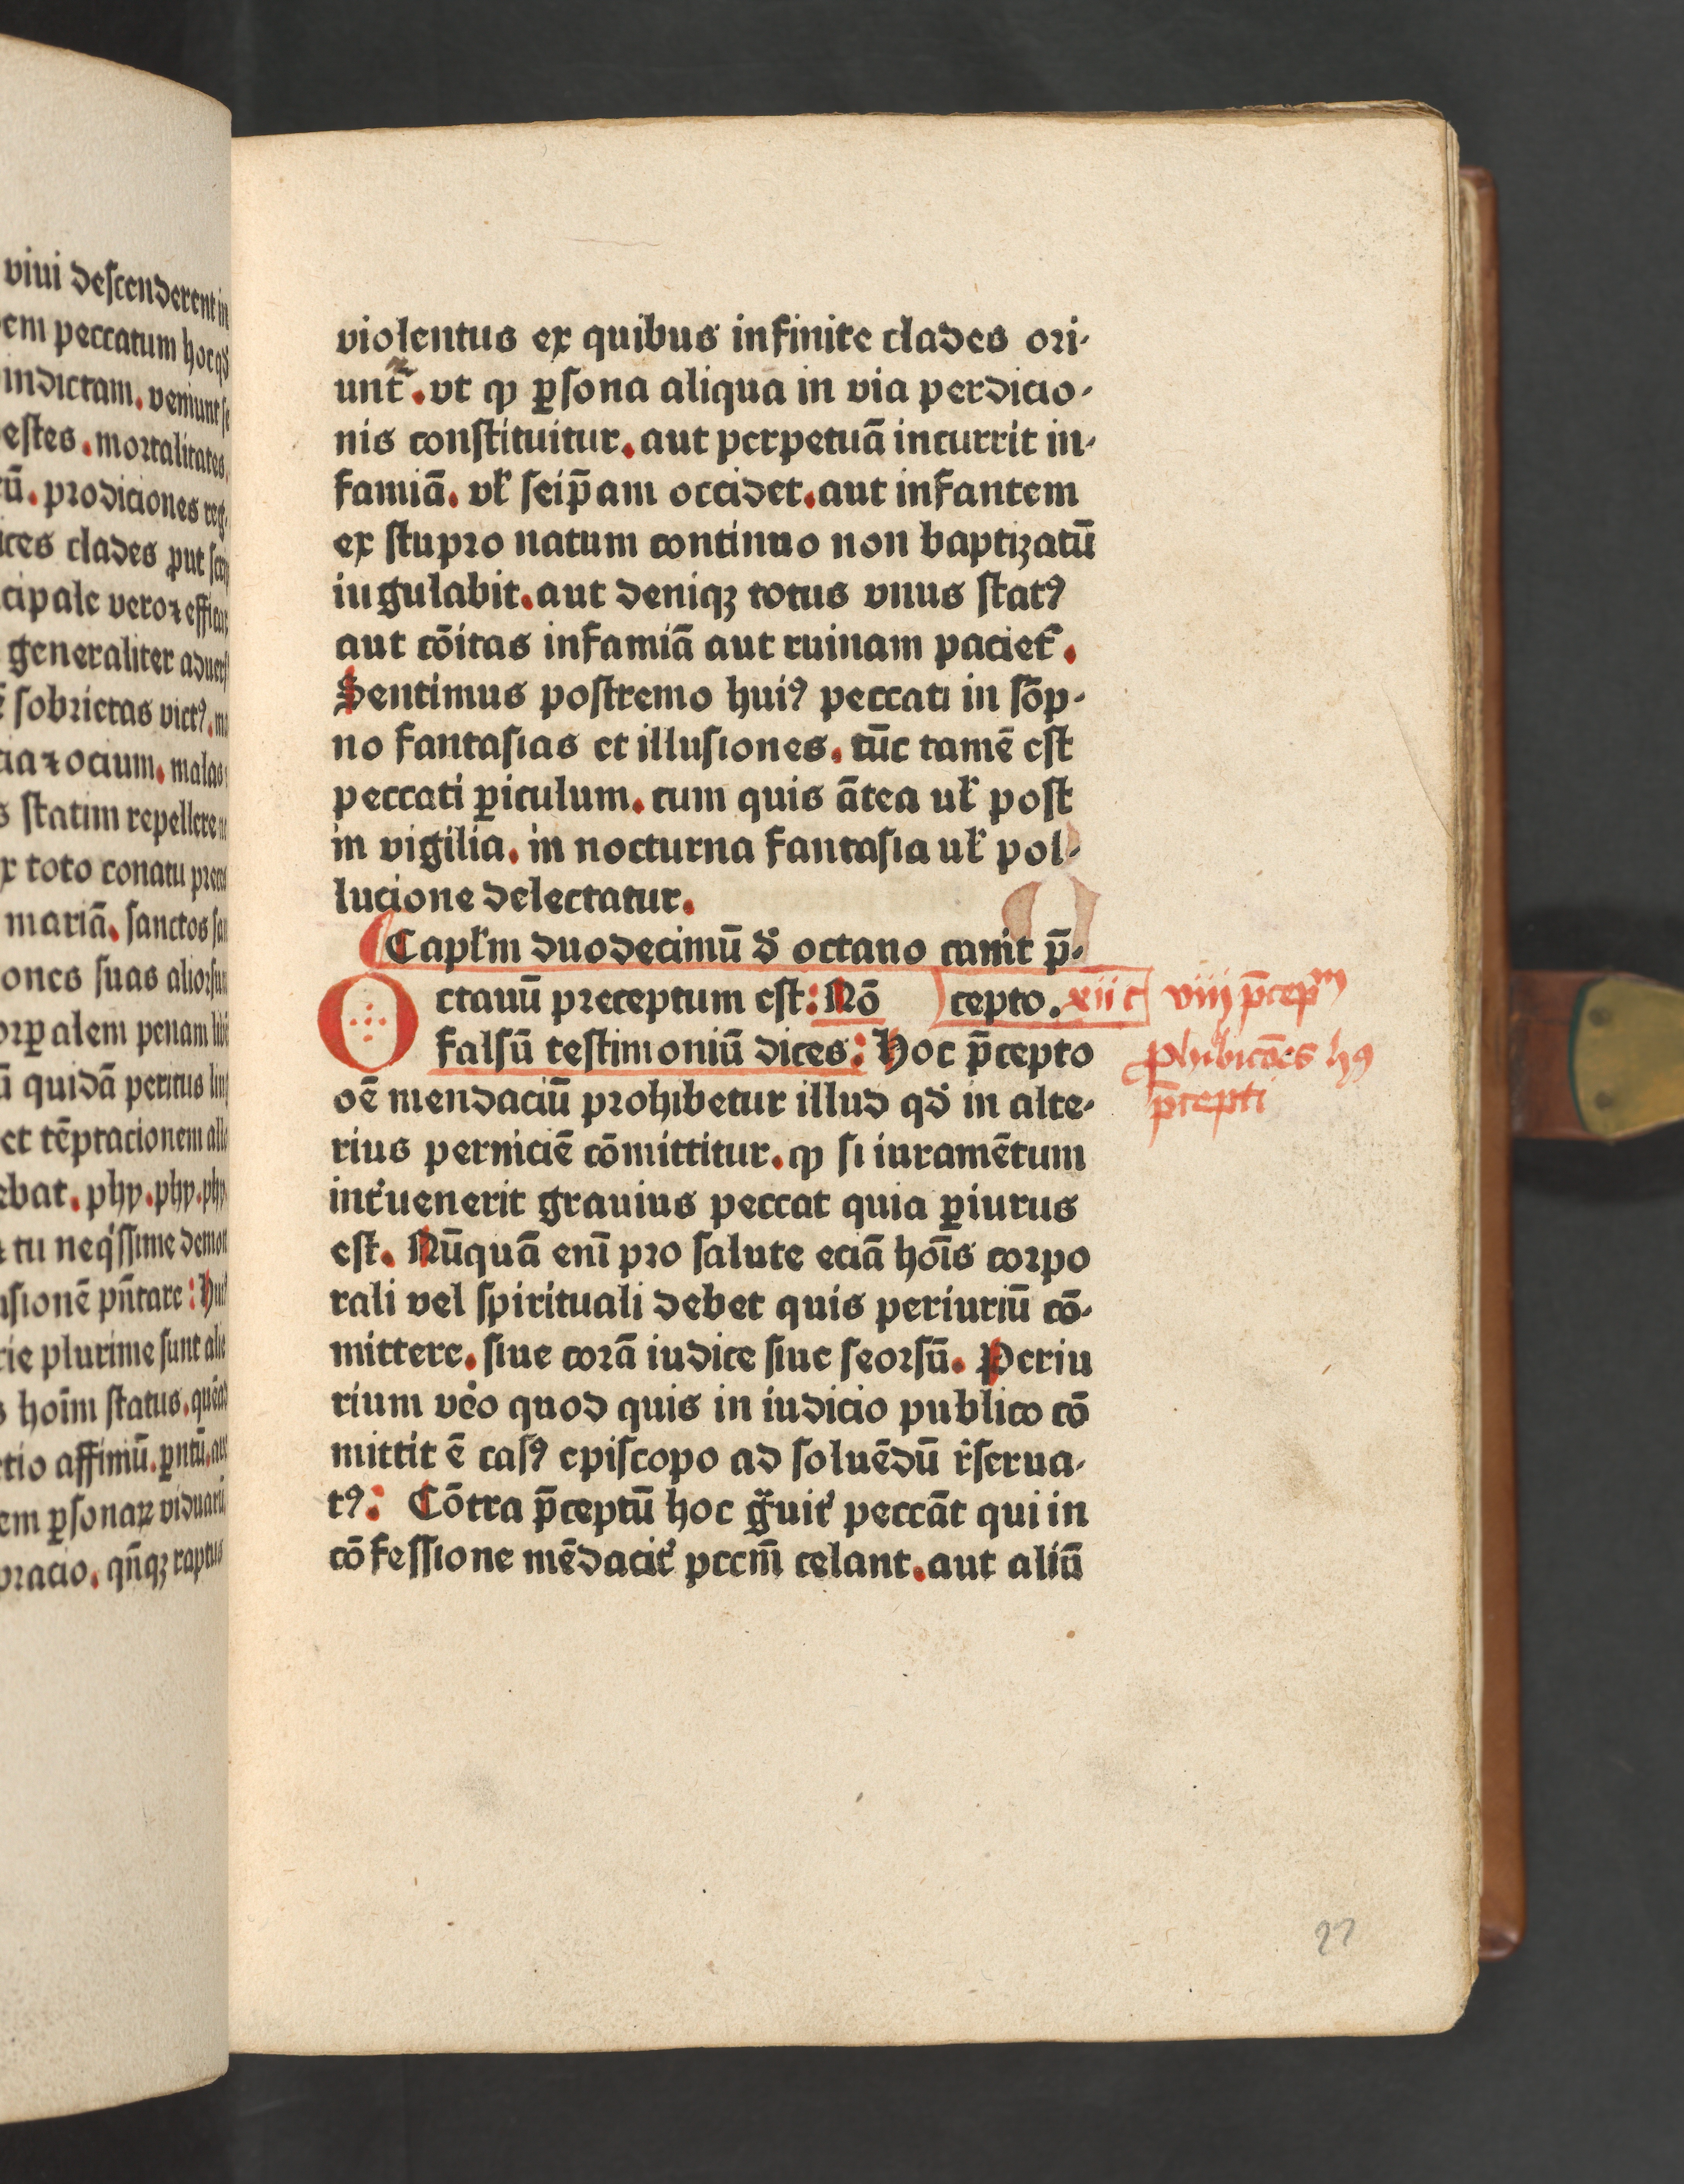 viui descenderent in
em peccatum hoc qď
indictam. veniunt se
estes. mortalitates.
cū. prodiciones reg.
ices clades ꝓut
cipale vero ⁊ effica
generaliter aduers
sobrietas victꝰ.
cia ⁊ ocium. malas
s statim repellere
x toto conatu
mariā. sanctos
ones suas aliorsum
orꝑalem penam
ū quidā peritus
et tēptacionem
ebat. phy. phy. phy.
⁊ tu neqͥssime
usionē pn̄tare:
rie plurime sunt
s hoīm status.
ctio affiniū. ꝑntū.
em ꝑsonaꝝ viduarū
oracio. qn̄qꝫ raptus
violentus ex quibus infinite clades ori⸗
unt᷑. vt ꝙ ꝑsona aliqua in via perdicio⸗
nis constituitur. aut perpetuā incurrit in⸗
famiā. vł seip̄am occidet. aut infantem
ex stupro natum continuo non baptizatū
iugulabit. aut deniqꝫ totus vnus statꝰ
aut cōitas infamiā aut ruinam paciet᷑.
Sentimus postremo huiꝰ peccati in sōp⸗
no fantasias et illusiones. tūc tamē est
peccati ꝑiculum. cum quis ātea uł post
in vigilia. in nocturna fantasia uł pol⸗
lucione delectatur.
Capłm duodecimū ď octano canit p̄⸗
cepto. xii c
Octauū preceptum est: Nō
falsū testimoniū dices: Hoc p̄cepto
oē mendaciū prohibetur illud qď in alte⸗
rius perniciē cōmittitur. ꝙ si iuramētum
int᷑uenerit grauius peccat quia ꝑiurus
est. Nūquā enī pro salute eciā hoīs corpo
rali vel spirituali debet quis periuriū cō⸗
mittere. siue corā iudice siue seorsū. Periu
rium veͦo quod quis in iudicio publico cō
mittit ē casꝰ episcopo ad soluēdū r᷑serua⸗
tꝰ: Cōtra p̄ceptū hoc gͣuit᷑ peccāt qui in
cōfessione mēdacit᷑ pccm̄ celant. aut aliū
viij p̄cepᵐ
ꝓhibicōes hꝰ
p̄cepti
27